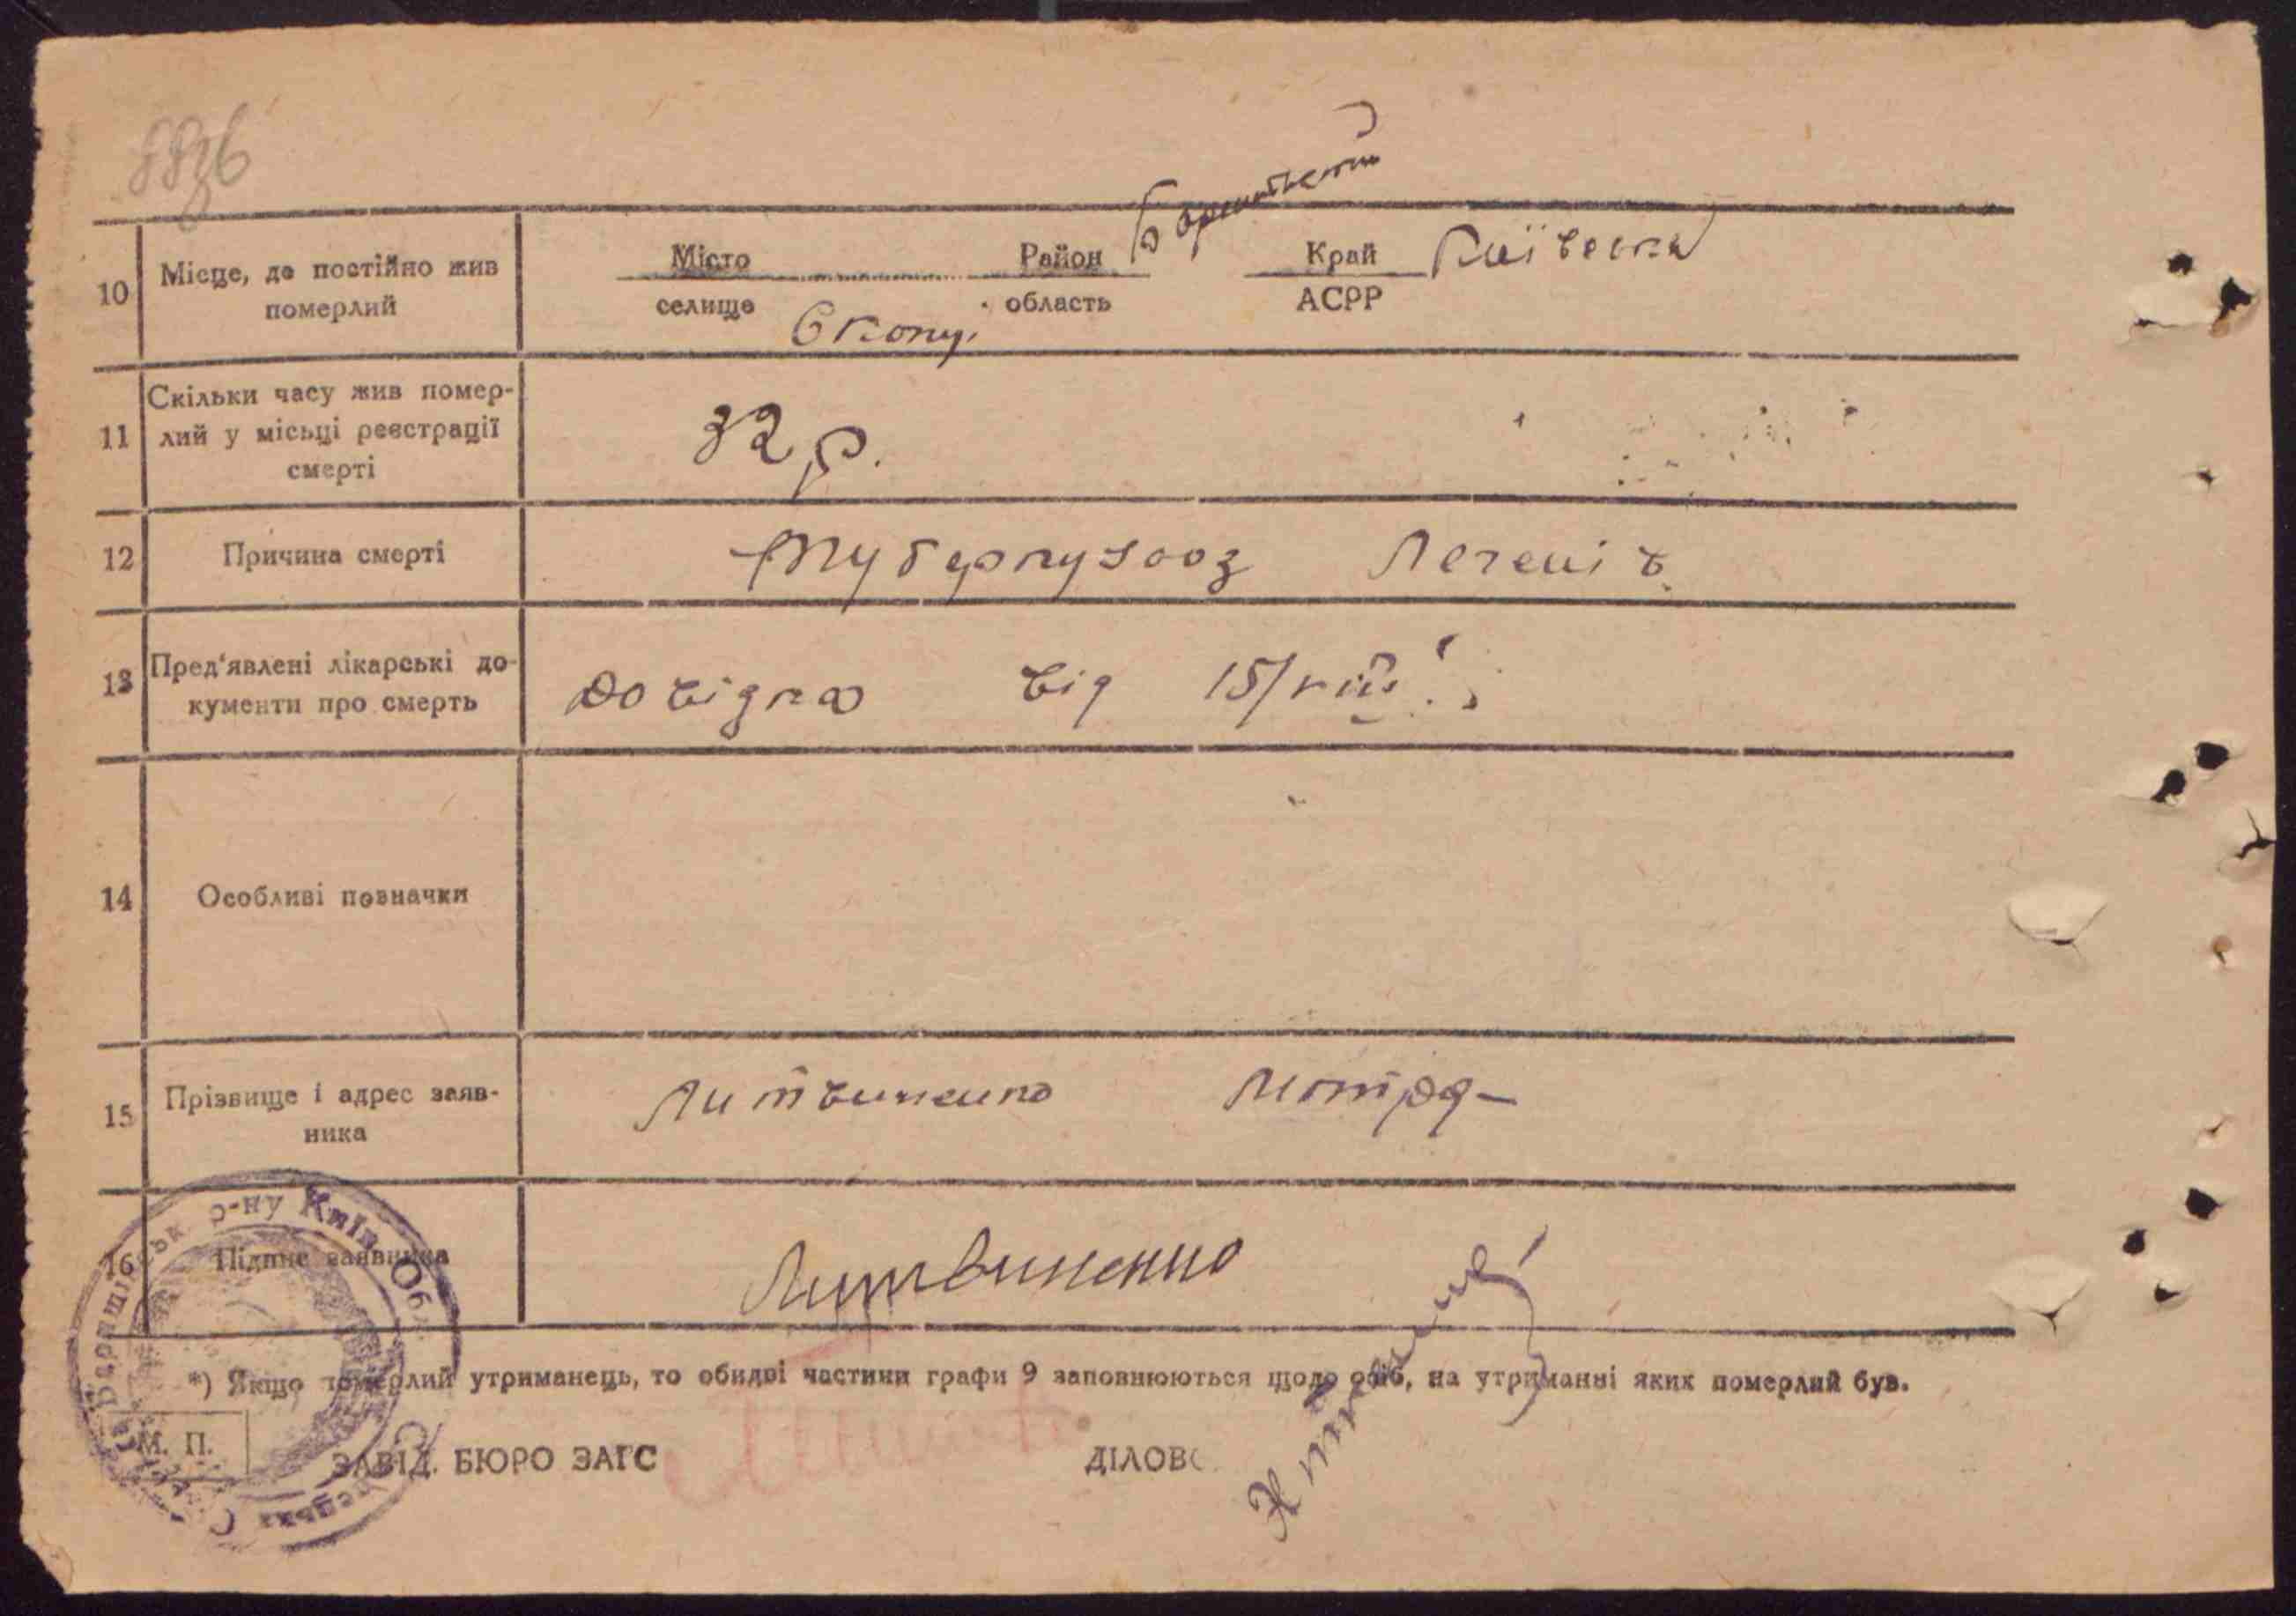 Баришівский
10 Місце, де постійно жив померлий
Місто Район Край Київська
селище Скопц. область АСРР
11 Скільки часу жив помер-
лий у місьці реєстрації
смерті
32 р.
12 Причина смерті Туберкульоз Легенів
13 Пред'явлені лікарські до-
кументи про смерть
довідка від 15/VIII
14 Особливі позначки
15 Прізвище і адрес заяв-
ника
Литвиненко Мотря
16 Підпис заявника Литвиненко
*) Якщо померлий утриманець, то обидві частини графи 9 заповнюються щодо осіб, на утриманні яких померлий був.
М. П.
ЗАВІД. БЮРО ЗАГС ДІЛОВ
р-ну Київ Обл.